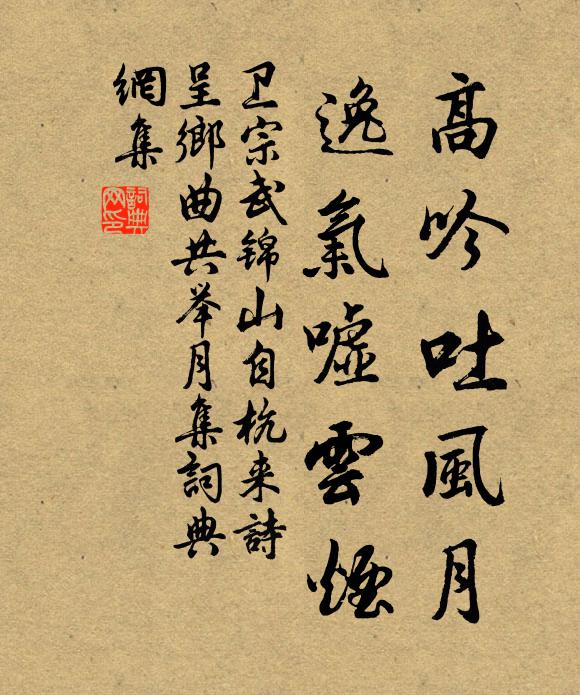 高吟吐風月
逸氣噓雲煙
卫宗武锦山自杭来詩
呈鄉曲共举月集詞典
網集
詞典
网印